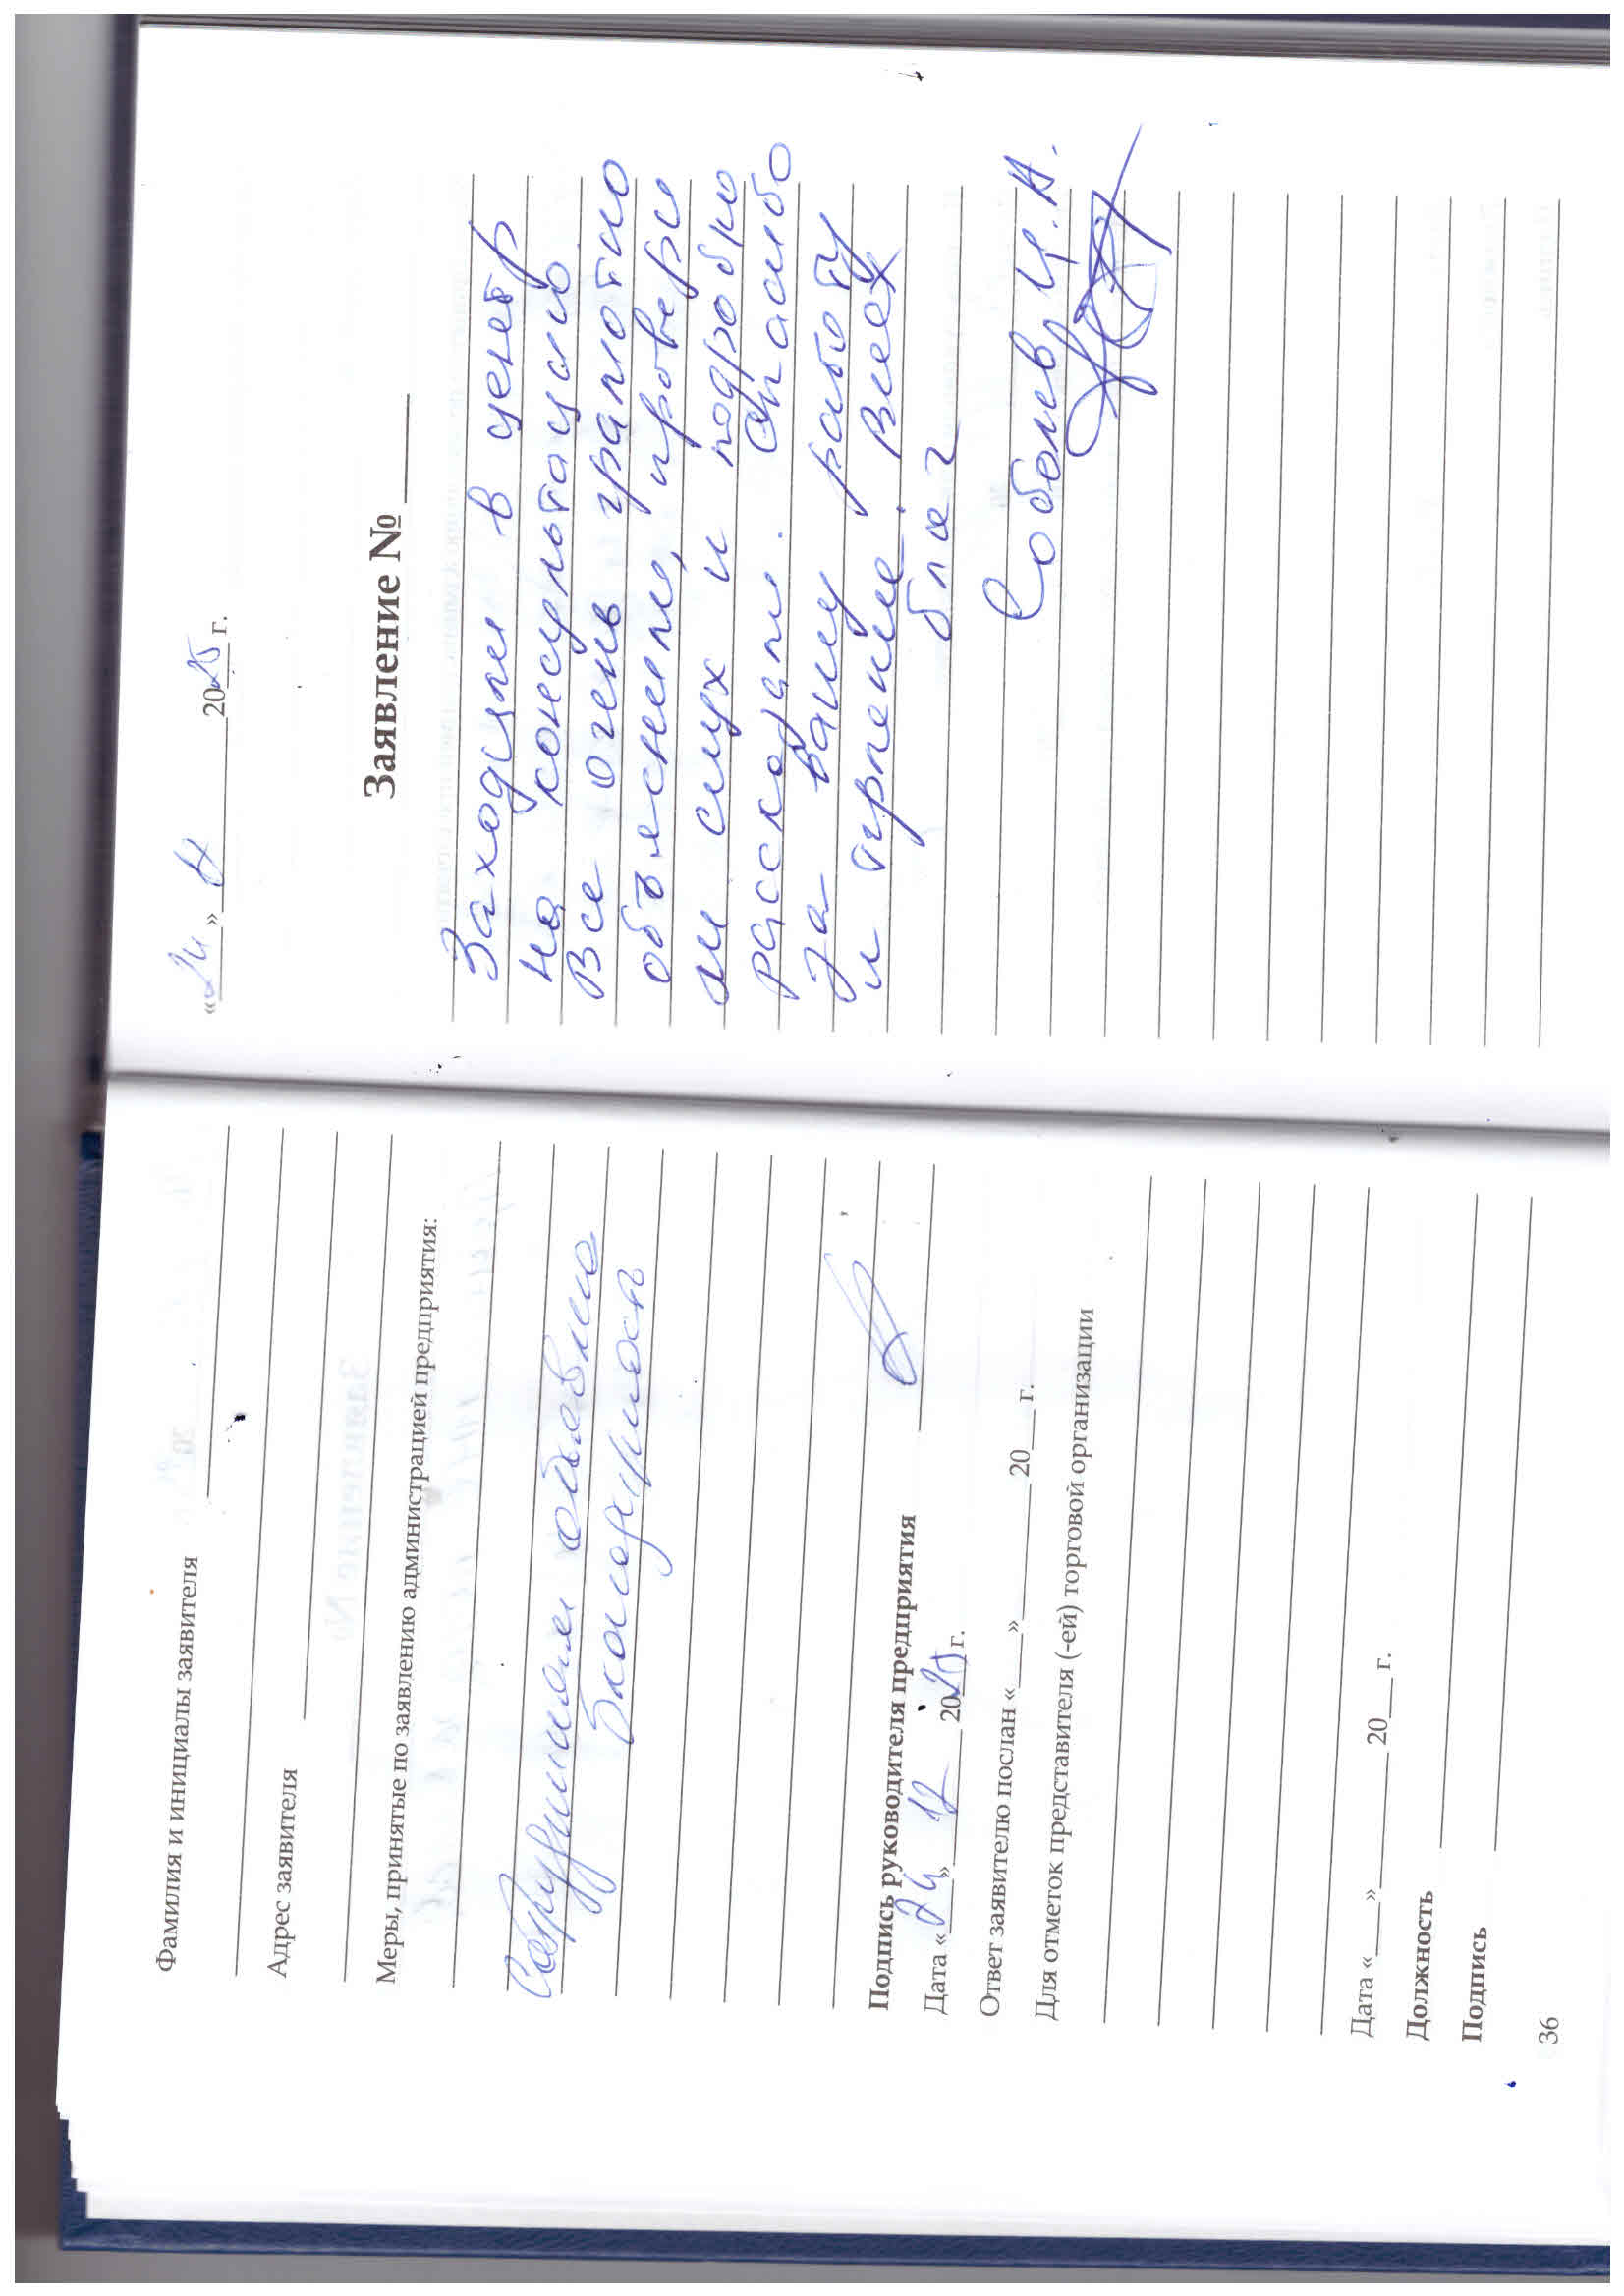 Фамилия и инициалы заявителя
Адрес заявителя
Меры, принятые по заявлению администрацией предприятия:
Сотрудникам объявлена
благодарность
Подпись руководителя предприятия
Дата «24» 12 2025 г.
Ответ заявителю послан «___» ______ 20___ г.
Для отметок представителя (-ей) торговой организации
Дата «___» ______ 20___ г.
Должность
Подпись
36
«24» 2025 г.
Заявление №
Заходили в центр
на консультацию
Все очень грамотно
объяснили, провери
ли слух и подробно
рассказали. Спасибо
за вашу работу
и терпение. Всех
благ
Соболев И.А.